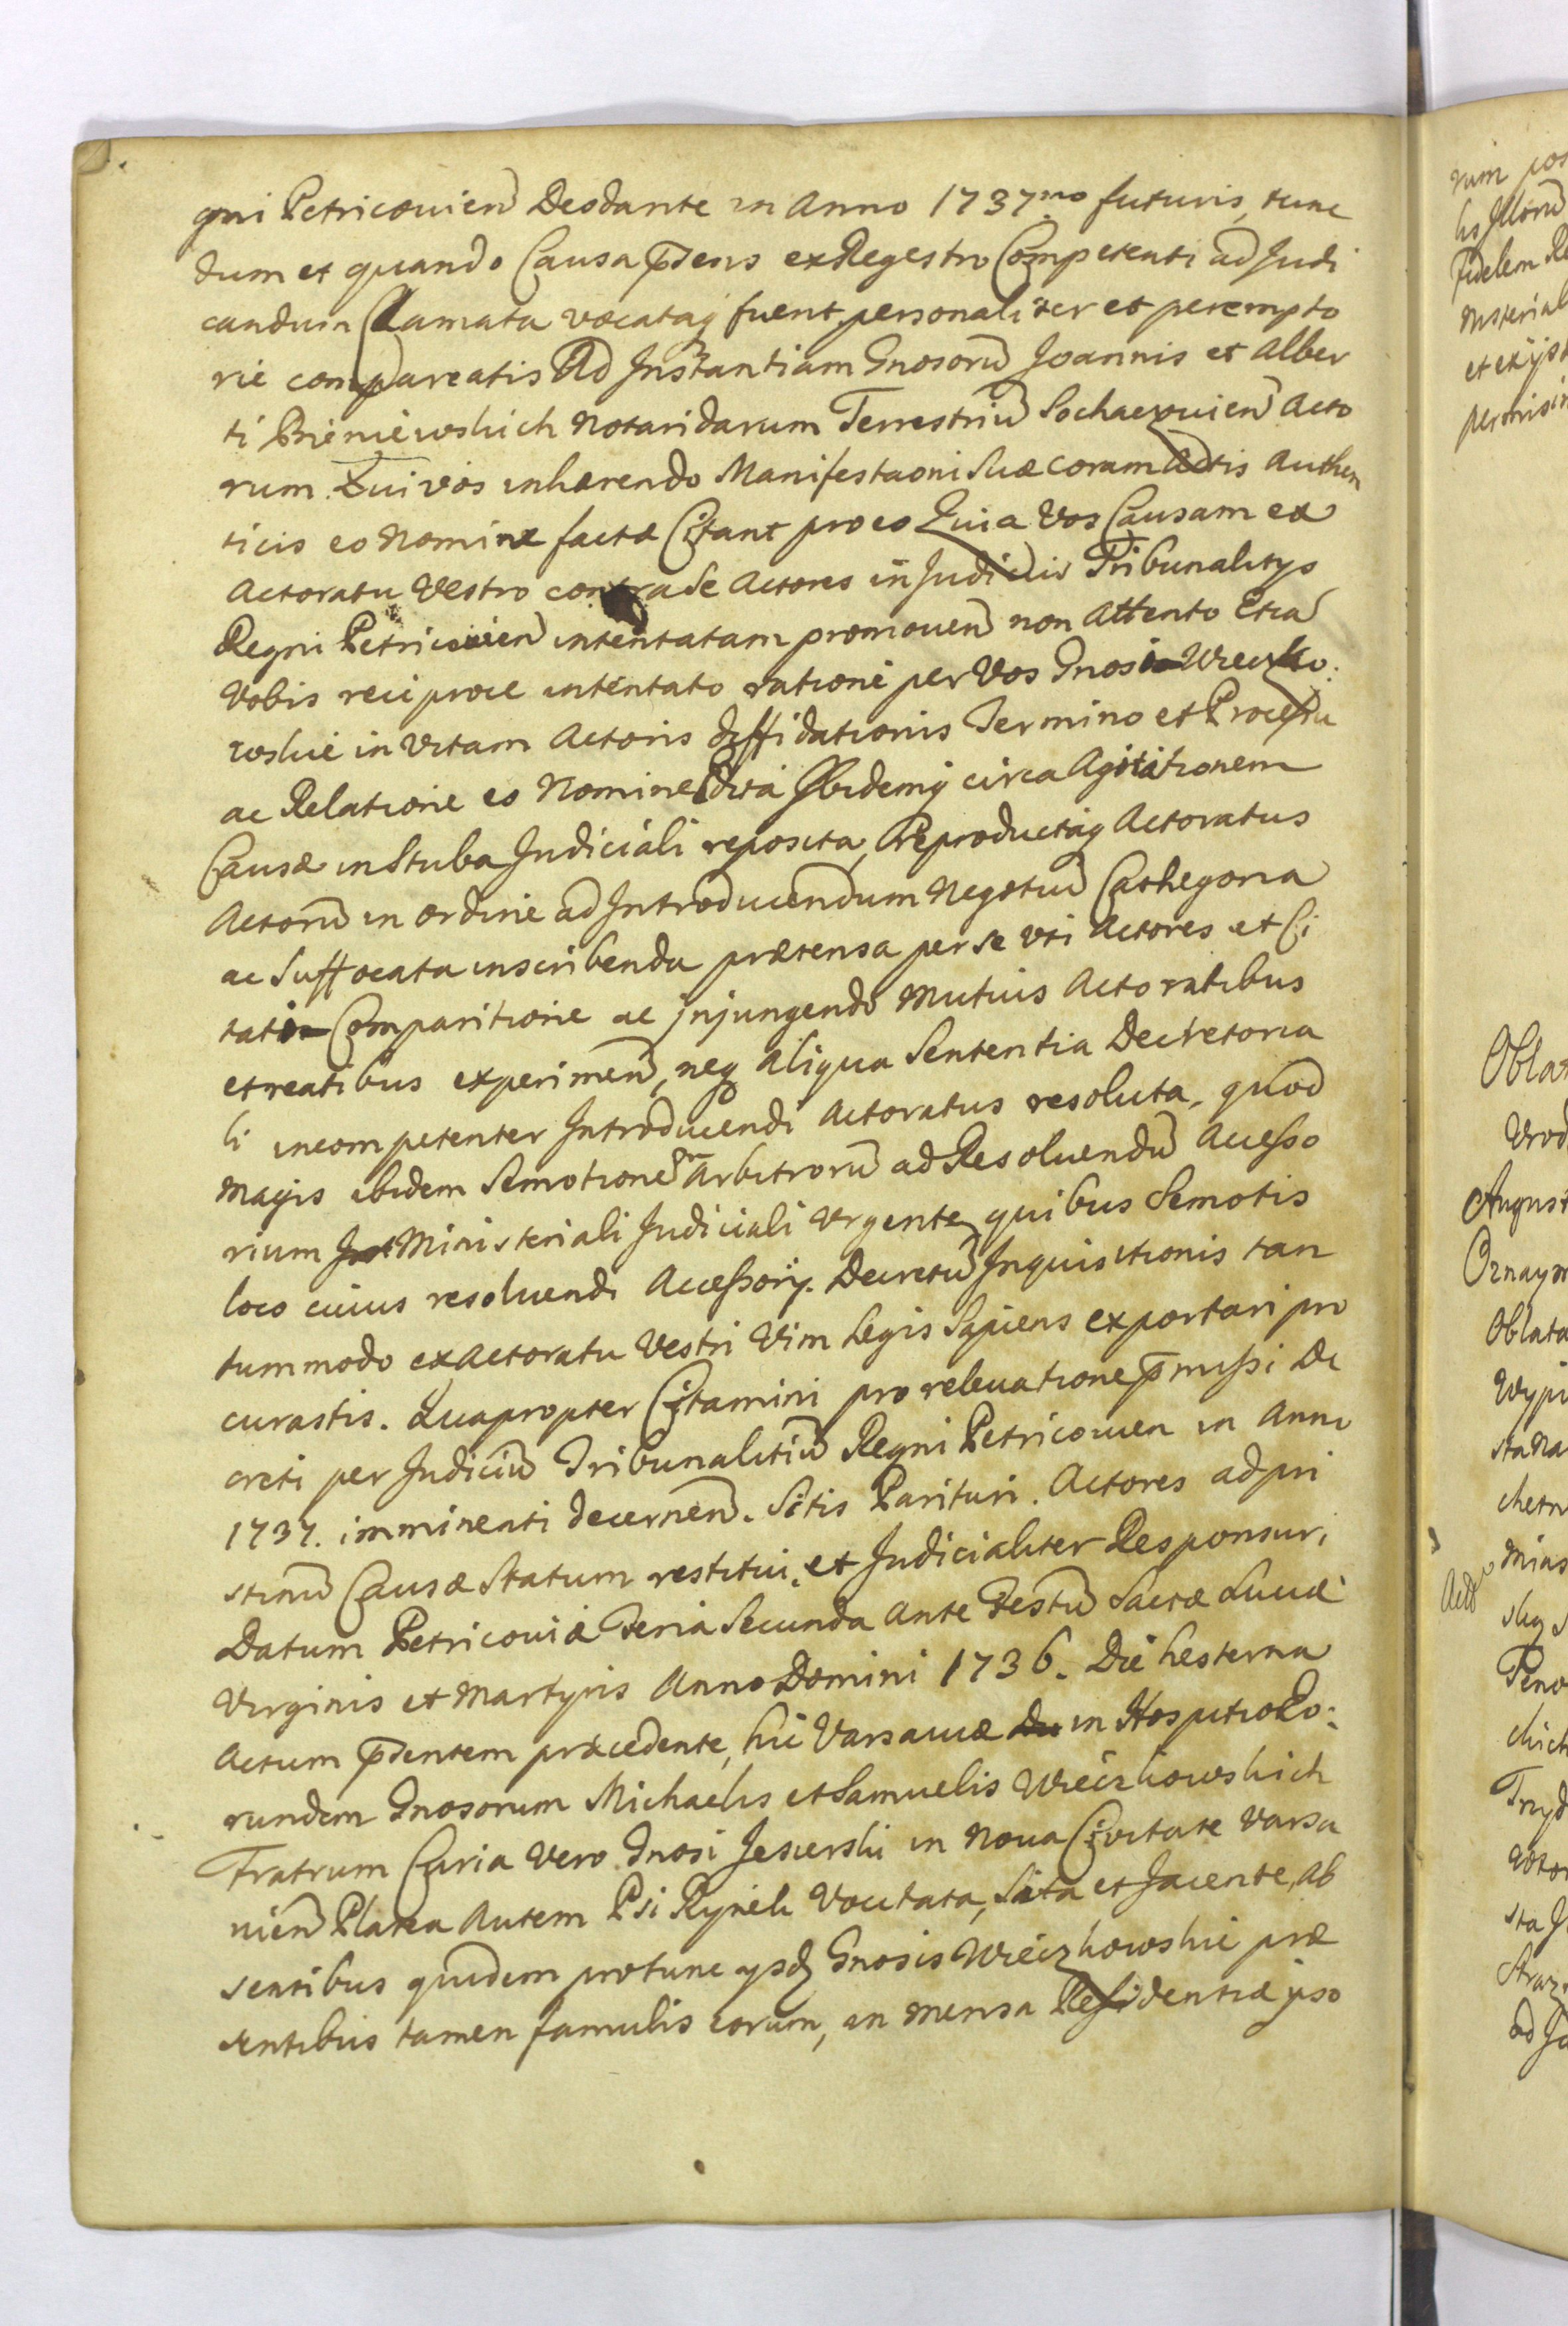 gni Petricouien̄ Deodante in Anno 1737mo futuris, tunc
dum et quando Causa p̄dens ex Regestro Competenti ad Judi
candum Clamata vocataq fuerit, personaliter et perempto
rie compareatis Ad Instantiam Gnosorū Joannis et Alber
ti Bieniewskich Notaridarum Terrestriū Sochaczouien̄ Acto
rum. Qui vos inhærendo Manifestaoni Suæ coram Actis Authen
ticis eo Nomine factæ Citant pro eo Quia Vos Causam ex
Actoratu Vestro contra Se Actores in Judicijs Tribunalitijs
Regni Petricouien̄ intentatam promouen̄ non Attento Etiā
Vobis reciproce intentato ratione per Vos Gnos Wieczko:
wskie in Vitam Actoris diffidationis Termino et Processu
ac Relatione eo Nomine Ibidemq circa Agitationem
Causæ in Stuba Judiciali reposita, Reproductaq Actoratus
Actorū in ordine ad Introducendum Negotiū Cathegoria
ac Suffocata inscribenda prætensa per se vti Actores et Ci
tato Comparitione ac injungendo Mutuis Actoratibus
et reatibus experimen̄, neq Aliqua Sententia Decretoria
li incompetenter Introducendi Actoratus resoluta, quod
Magis ibidem Semotionem Arbitrorū ad Resoluendū Accesso
rium Ministeriali Judiciali Vrgente, quibus Semotis
loco cuius resoluendi Accessorij. Decretū Inquisitionis tan
tummodo ex Actoratu Vestri Vim Legis Sapiens exportari pro
curastis. Quapropter Citamini pro releuatione p̄missi De
creti per Judiciū Tribunalitiū Regni Petricouien in Anno
1737. imminenti decernen̄. Sitis Parituri. Actores ad pri
stinū Causæ Statum restitui, et Judicialiter Responsuri
Datum Petricouiæ Feria Secunda Ante Festū Sactæ Luciæ
Virginis et Martyris Anno Domini 1736. Die hesterna
Actum p̄dentem præcedente, hic Varsauiæ in Hospitio Eo:
rundem Gnosorum Michaelis et Samuelis Wieczkowskich
Fratrum Curia Vero Gnosi Jezierski in Noua Ciuitate Varsa
uien̄ Platea Autem Psi Rynek Vocitata, Sita et Jacente, Ab
sentibus quidem protunc ijsdē Gnosis Wieczkowskie præ
sentibus tamen famulis eorum, in mensa Residentiæ ipso